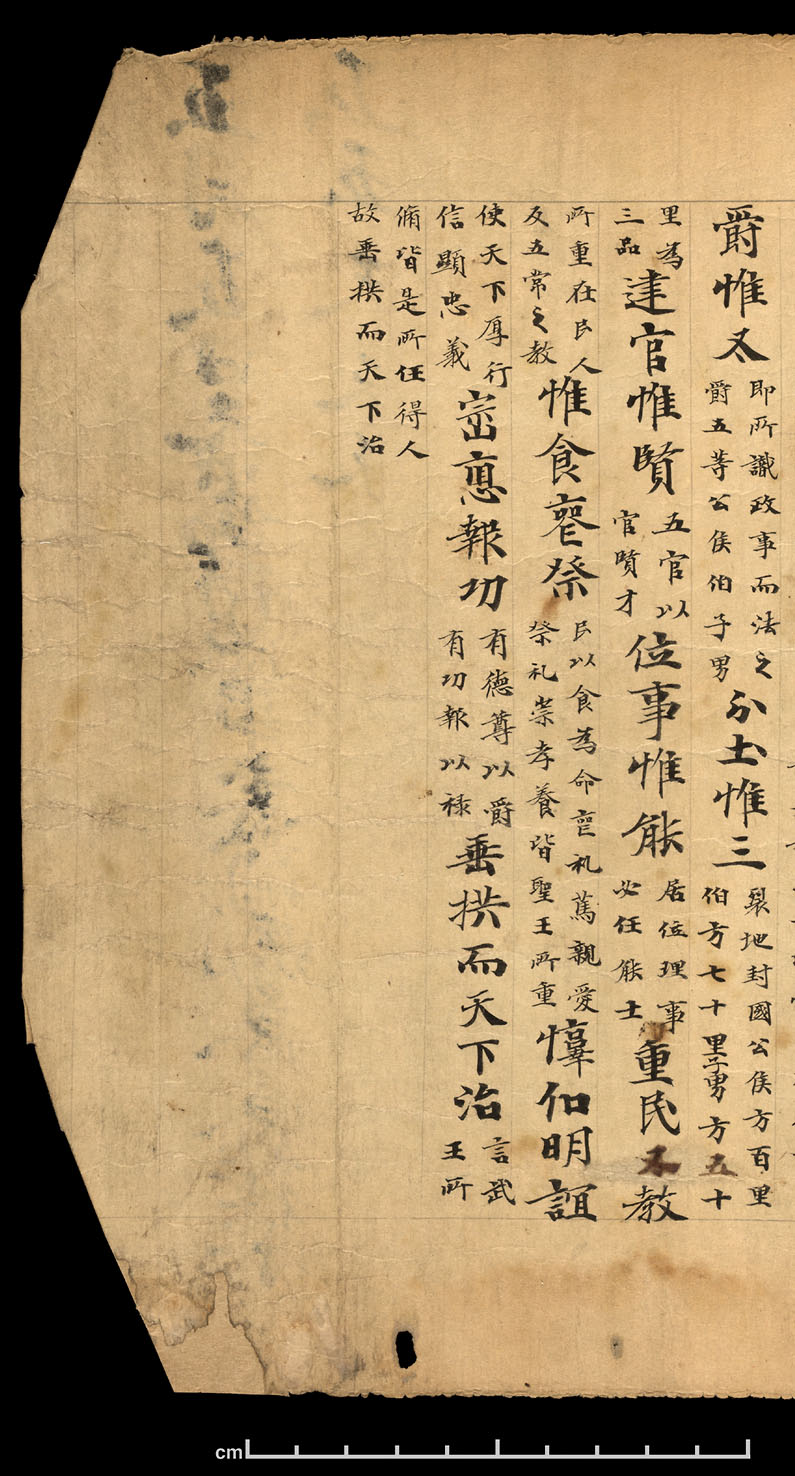 爵惟𠄡即所識政事而法之爵五等公侯伯子男分土惟三裂地封國公侯方百里伯方七十里子男方五十
里為三品建官惟賢五官以官賢才位事惟能居位理事必任能士重民𠄡教
所重在民人及五常之教惟食喪祭民以食為命喪礼篤親愛祭礼崇孝養皆聖王所重惇㐰明誼
使天下厚行信顯忠義崈悳報功有德尊以爵有功報以禄垂拱而天下治言武王所
脩皆是所任得人故垂拱而天下治